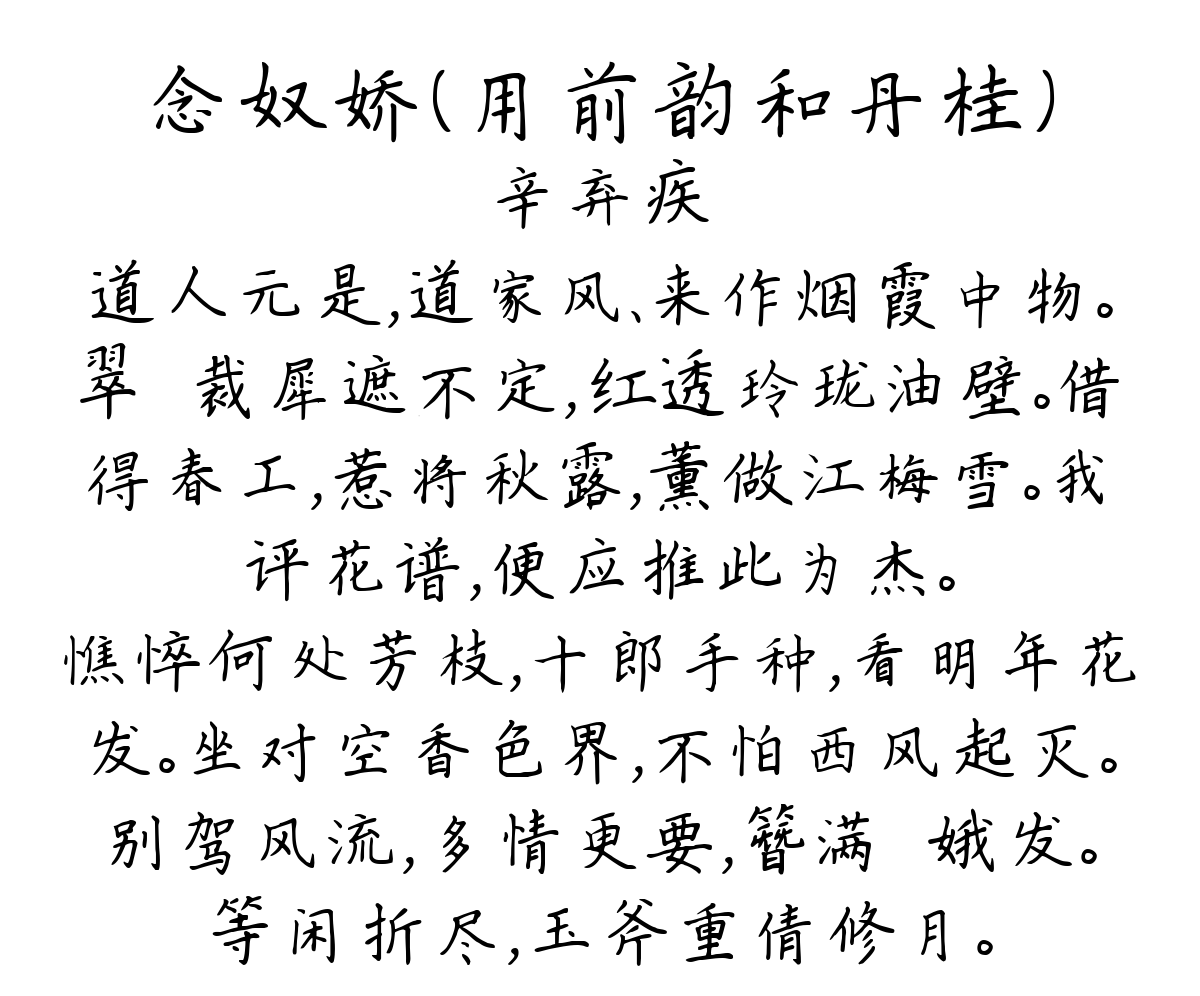 念奴娇(用前韵和丹桂)
辛弃疾
道人元是,道家风、来作烟霞中物。
翠 裁犀遮不定,红透玲珑油壁。借
得春工,惹将秋露,薰做江梅雪。我
评花谱,便应推此为杰。
憔悴何处芳枝,十郎手种,看明年花
发。坐对空香色界,不怕西风起灭。
别驾风流,多情更要,簪满 娥发。
等闲折尽,玉斧重倩修月。